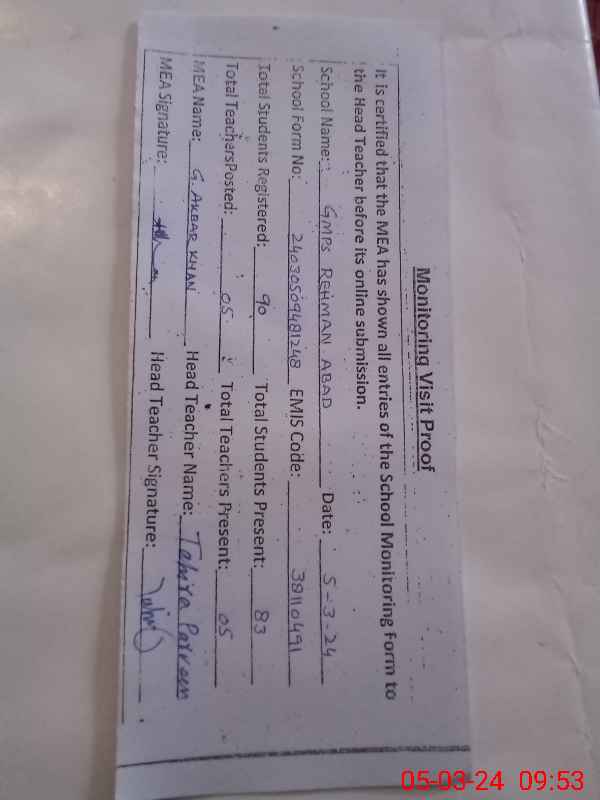 Monitoring Visit Proof
It is certified that the MEA has shown all entries of the School Monitoring Form to
the Head Teacher before its online submission.
School Name: GMPS REHMAN ABAD Date: 5-3-24
School Form No: 24030509481248 EMIS Code: 38110491
Total Students Registered: 90 Total Students Present: 83
Total TeachersPosted: 05 Total Teachers Present: 05
MEA Name: G. AKBAR KHAN Head Teacher Name: Tahira Parveen
MEA Signature: Head Teacher Signature:
05-03-24 09:53